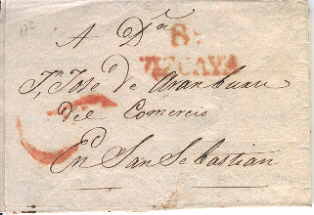 A Dn
B.
VIZCAYA
Jn José de Aranburu
del Comercio
En San Sebastian